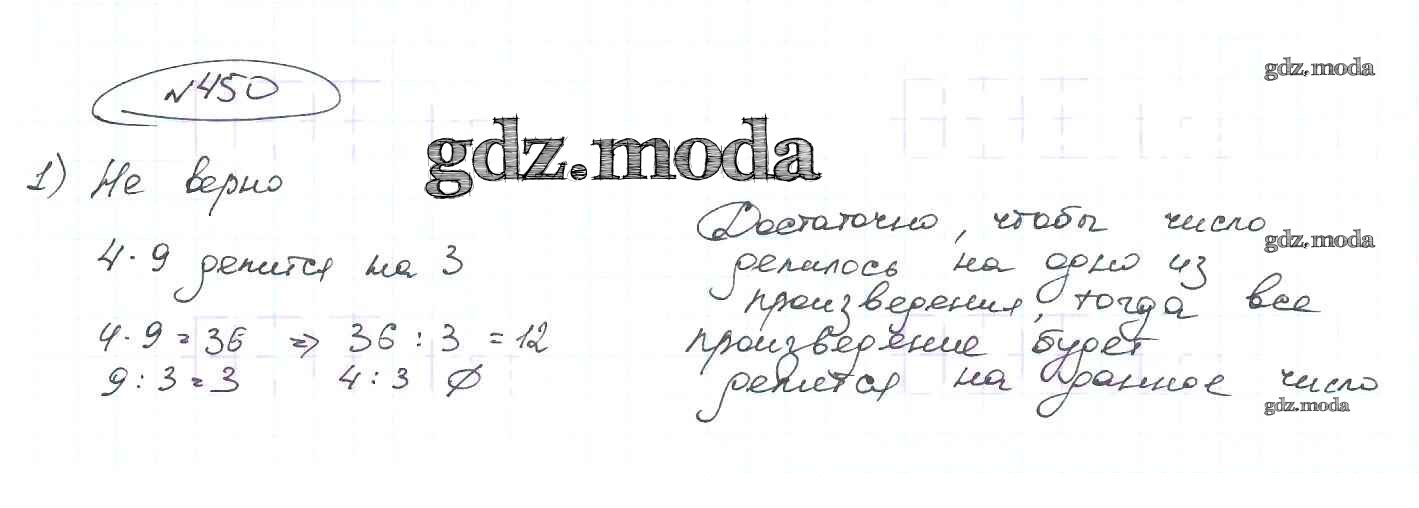 №450
gdz.moda
gdz.moda
1) Не верно
4·9 делится на 3
4·9=36 => 36:3=12
9:3=3 4:3 ∅
Достаточно, чтобы число
gdz.moda
делилось на одно из
произведения, тогда все
произведение будет
делится на данное число
gdz.moda